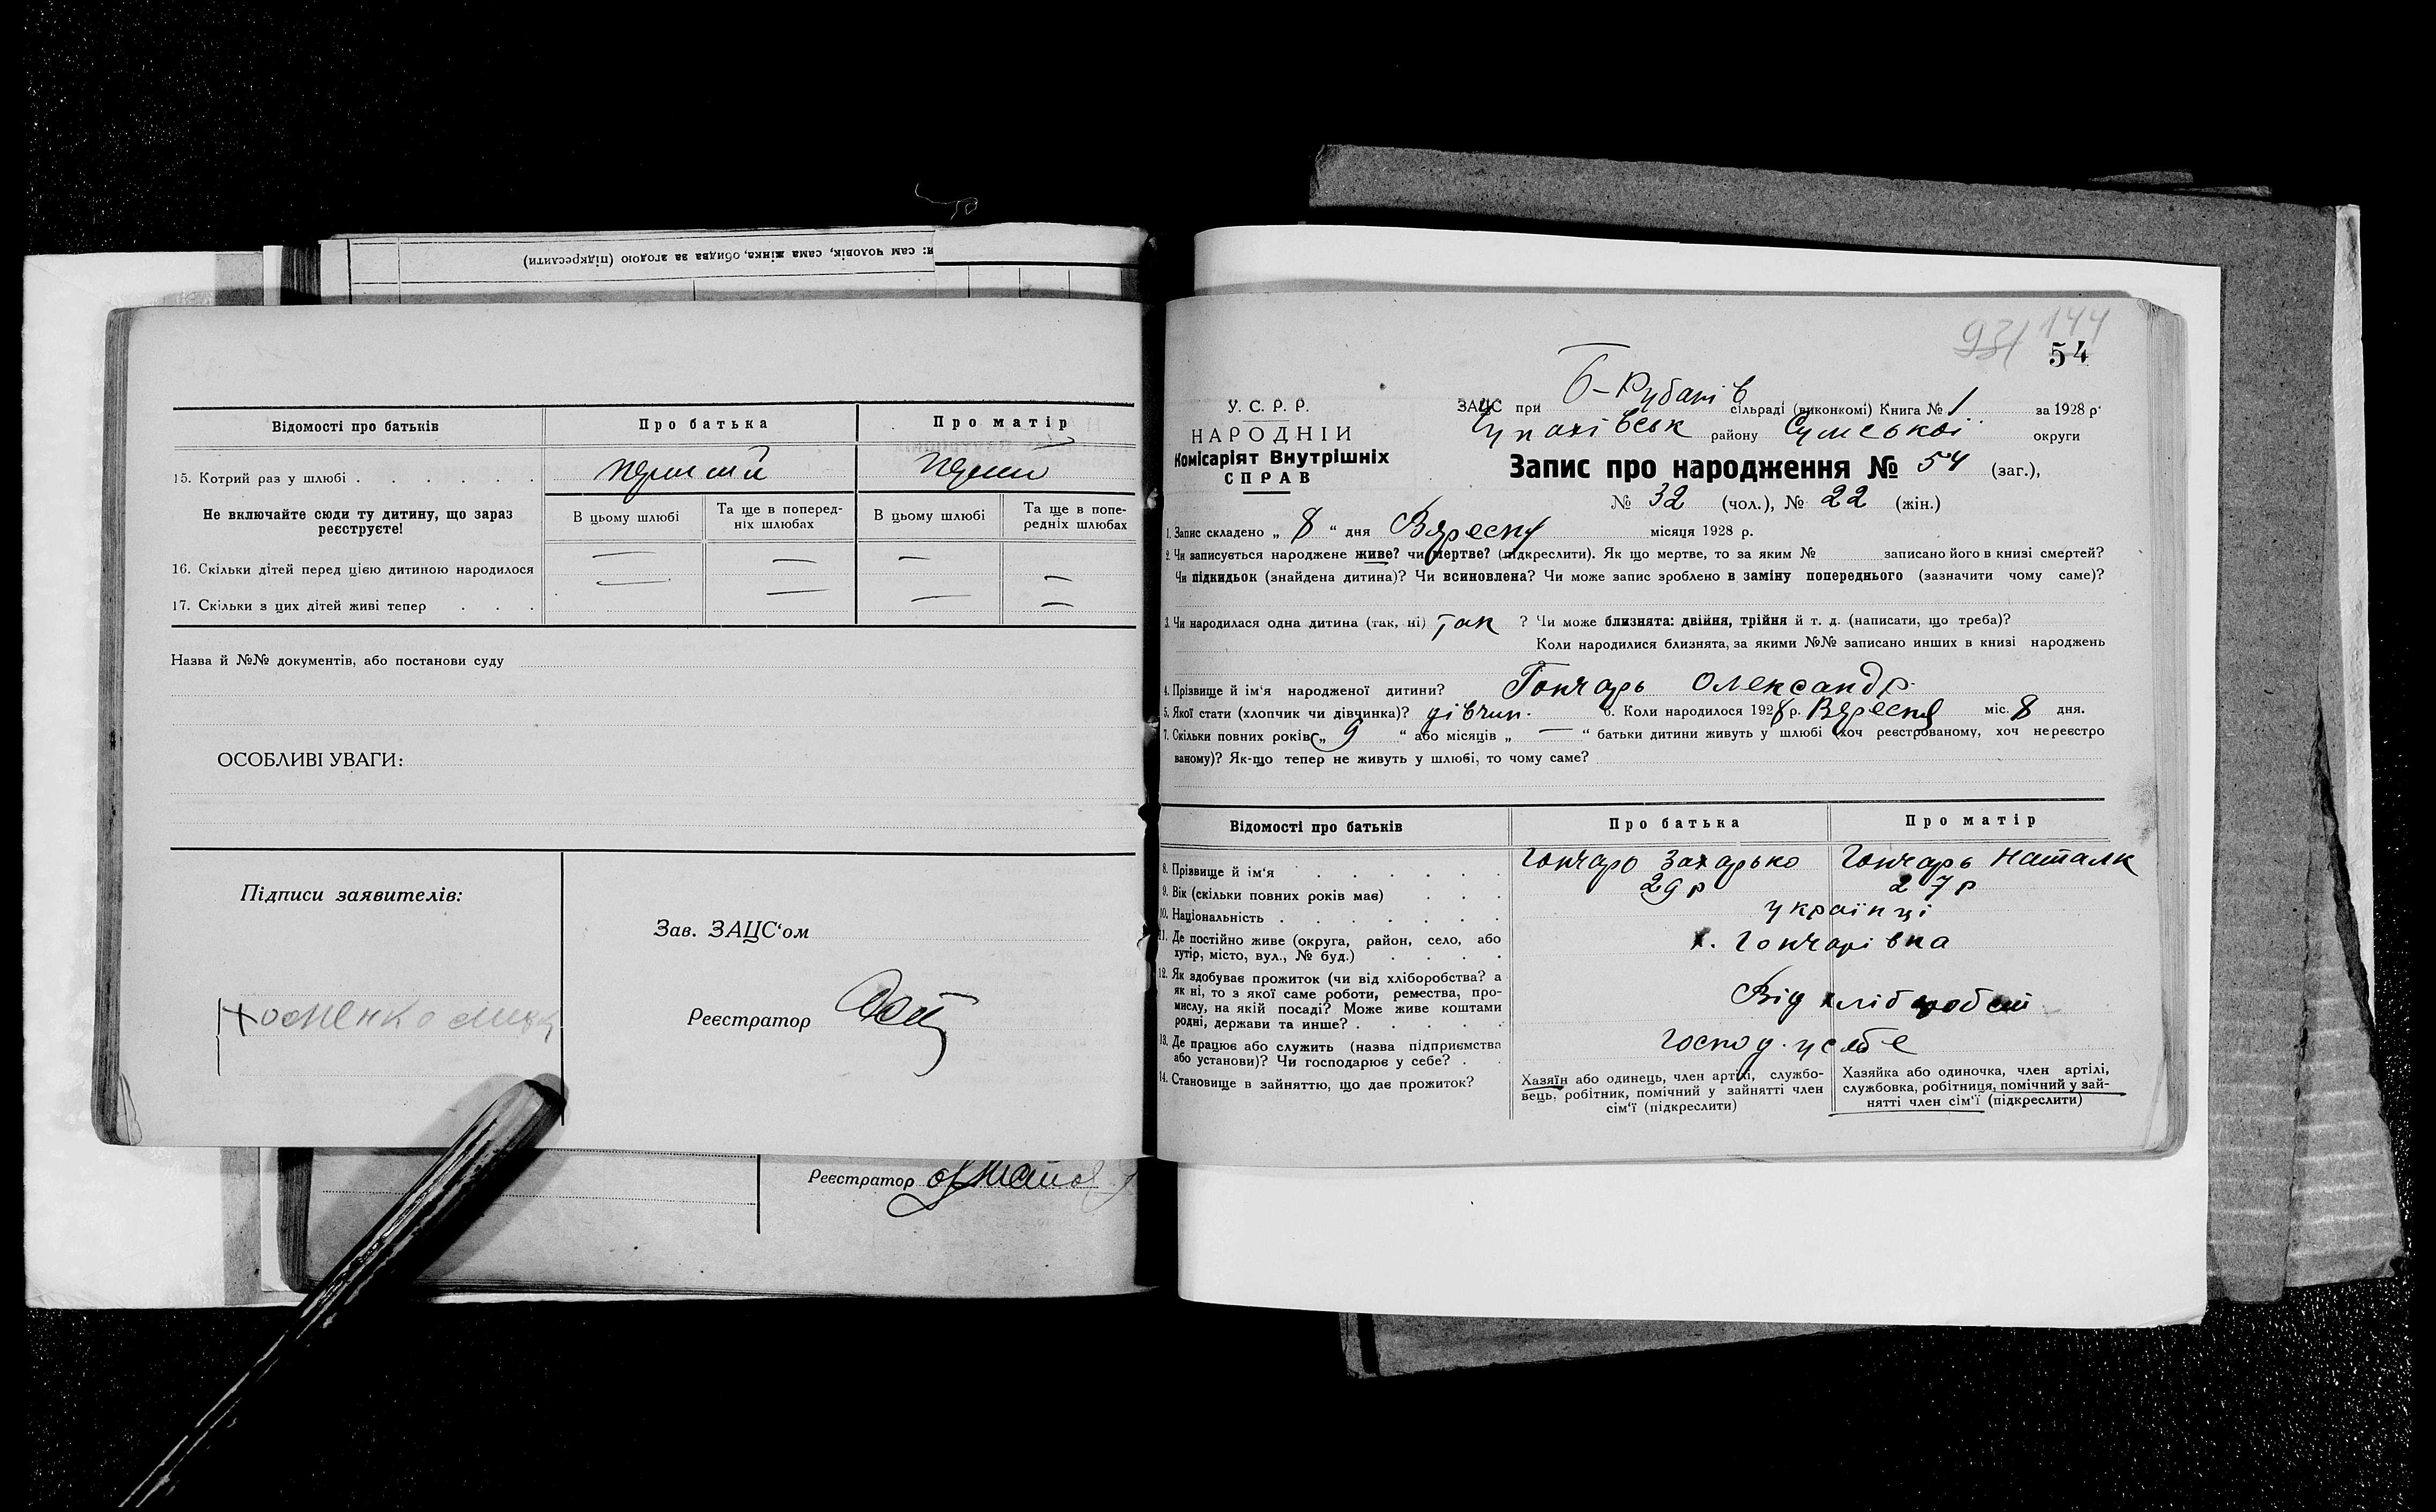 и: сам чоловік, сама жінка, обидва за згодою (підкреслити)
Відомості про батьків
Про батька
Про матір
15. Котрий раз у шлюбі . . . . . .
перший
перший
Не включайте сюди ту дитину, що зараз реєструєте!
В цьому шлюбі
Та ще в поперед-
ніх шлюбах
В цьому шлюбі
Та ще в попе-
редніх шлюбах
16. Скільки дітей перед цією дитиною народилося
— — —
17. Скільки з цих дітей живі тепер . . .
— — — — —
Назва й №№ документів, або постанови суду
ОСОБЛИВІ УВАГИ:
Підписи заявителів:
Зав. ЗАЦС‘ом
Реєстратор
Реєстратор
144
54
У. С. Р. Р.
НАРОДНІЙ
Комісаріят Внутрішніх
СПРАВ
ЗАЦС при Б-Рубанів сільраді (виконкомі) Книга № 1 за 1928 р.
Чупахівськ району Сумської округи
Запис про народження № 54 (заг.),
№ 32 (чол.), № 22 (жін.)
1. Запис складено „ 8 “ дня Вересня місяця 1928 р.
2. Чи записується народжене живе? чи мертве? (підкреслити). Як що мертве, то за яким № записано його в книзі смертей?
Чи підкидьок (знайдена дитина)? Чи всиновлена? Чи може запис зроблено в заміну попереднього (зазначити чому саме)?
3. Чи народилася одна дитина (так, ні) так ? Чи може близнята: двійня, трійня й т. д. (написати, що треба)?
Коли народилися близнята, за якими №№ записано инших в книзі народжень
4. Прізвище й ім‘я народженої дитини? Гончарь Олександр.
5. Якої стати (хлопчик чи дівчинка)? дівчин. 6. Коли народилося 1928 р. Вересня міс. 8 дня.
7. Скільки повних років „ 9 “ або місяців „ — “ батьки дитини живуть у шлюбі (хоч реєстрованому, хоч нереєстро
ваному)? Як-що тепер не живуть у шлюбі, то чому саме?
Відомості про батьків
Про батька
Про матір
8. Прізвище й ім‘я . . . . . .
Гончарь Захарько
Гончарь Наталк
9. Вік (скільки повних років має) . . .
29 р
27 р
10. Національність . . . . . .
українці
11. Де постійно живе (округа, район, село, або
хутір, місто, вул., № буд.) . . . .
х. Гончарівка
12. Як здобуває прожиток (чи від хліборобства? а
як ні, то з якої саме роботи, ремества, про-
мислу, на якій посаді? Може живе коштами
родні, держави та инше? . . . . .
Від хліборобст
13. Де працює або служить (назва підприємства
або установи)? Чи господарює у себе? . .
господ. у себе
14. Становище в зайняттю, що дає прожиток?
Хазяїн або одинець, член артілі, службо-
вець, робітник, помічний у зайнятті член
сім‘ї (підкреслити)
Хазяйка або одиночка, член артілі,
службовка, робітниця, помічний у зай-
нятті член сім‘ї (підкреслити)